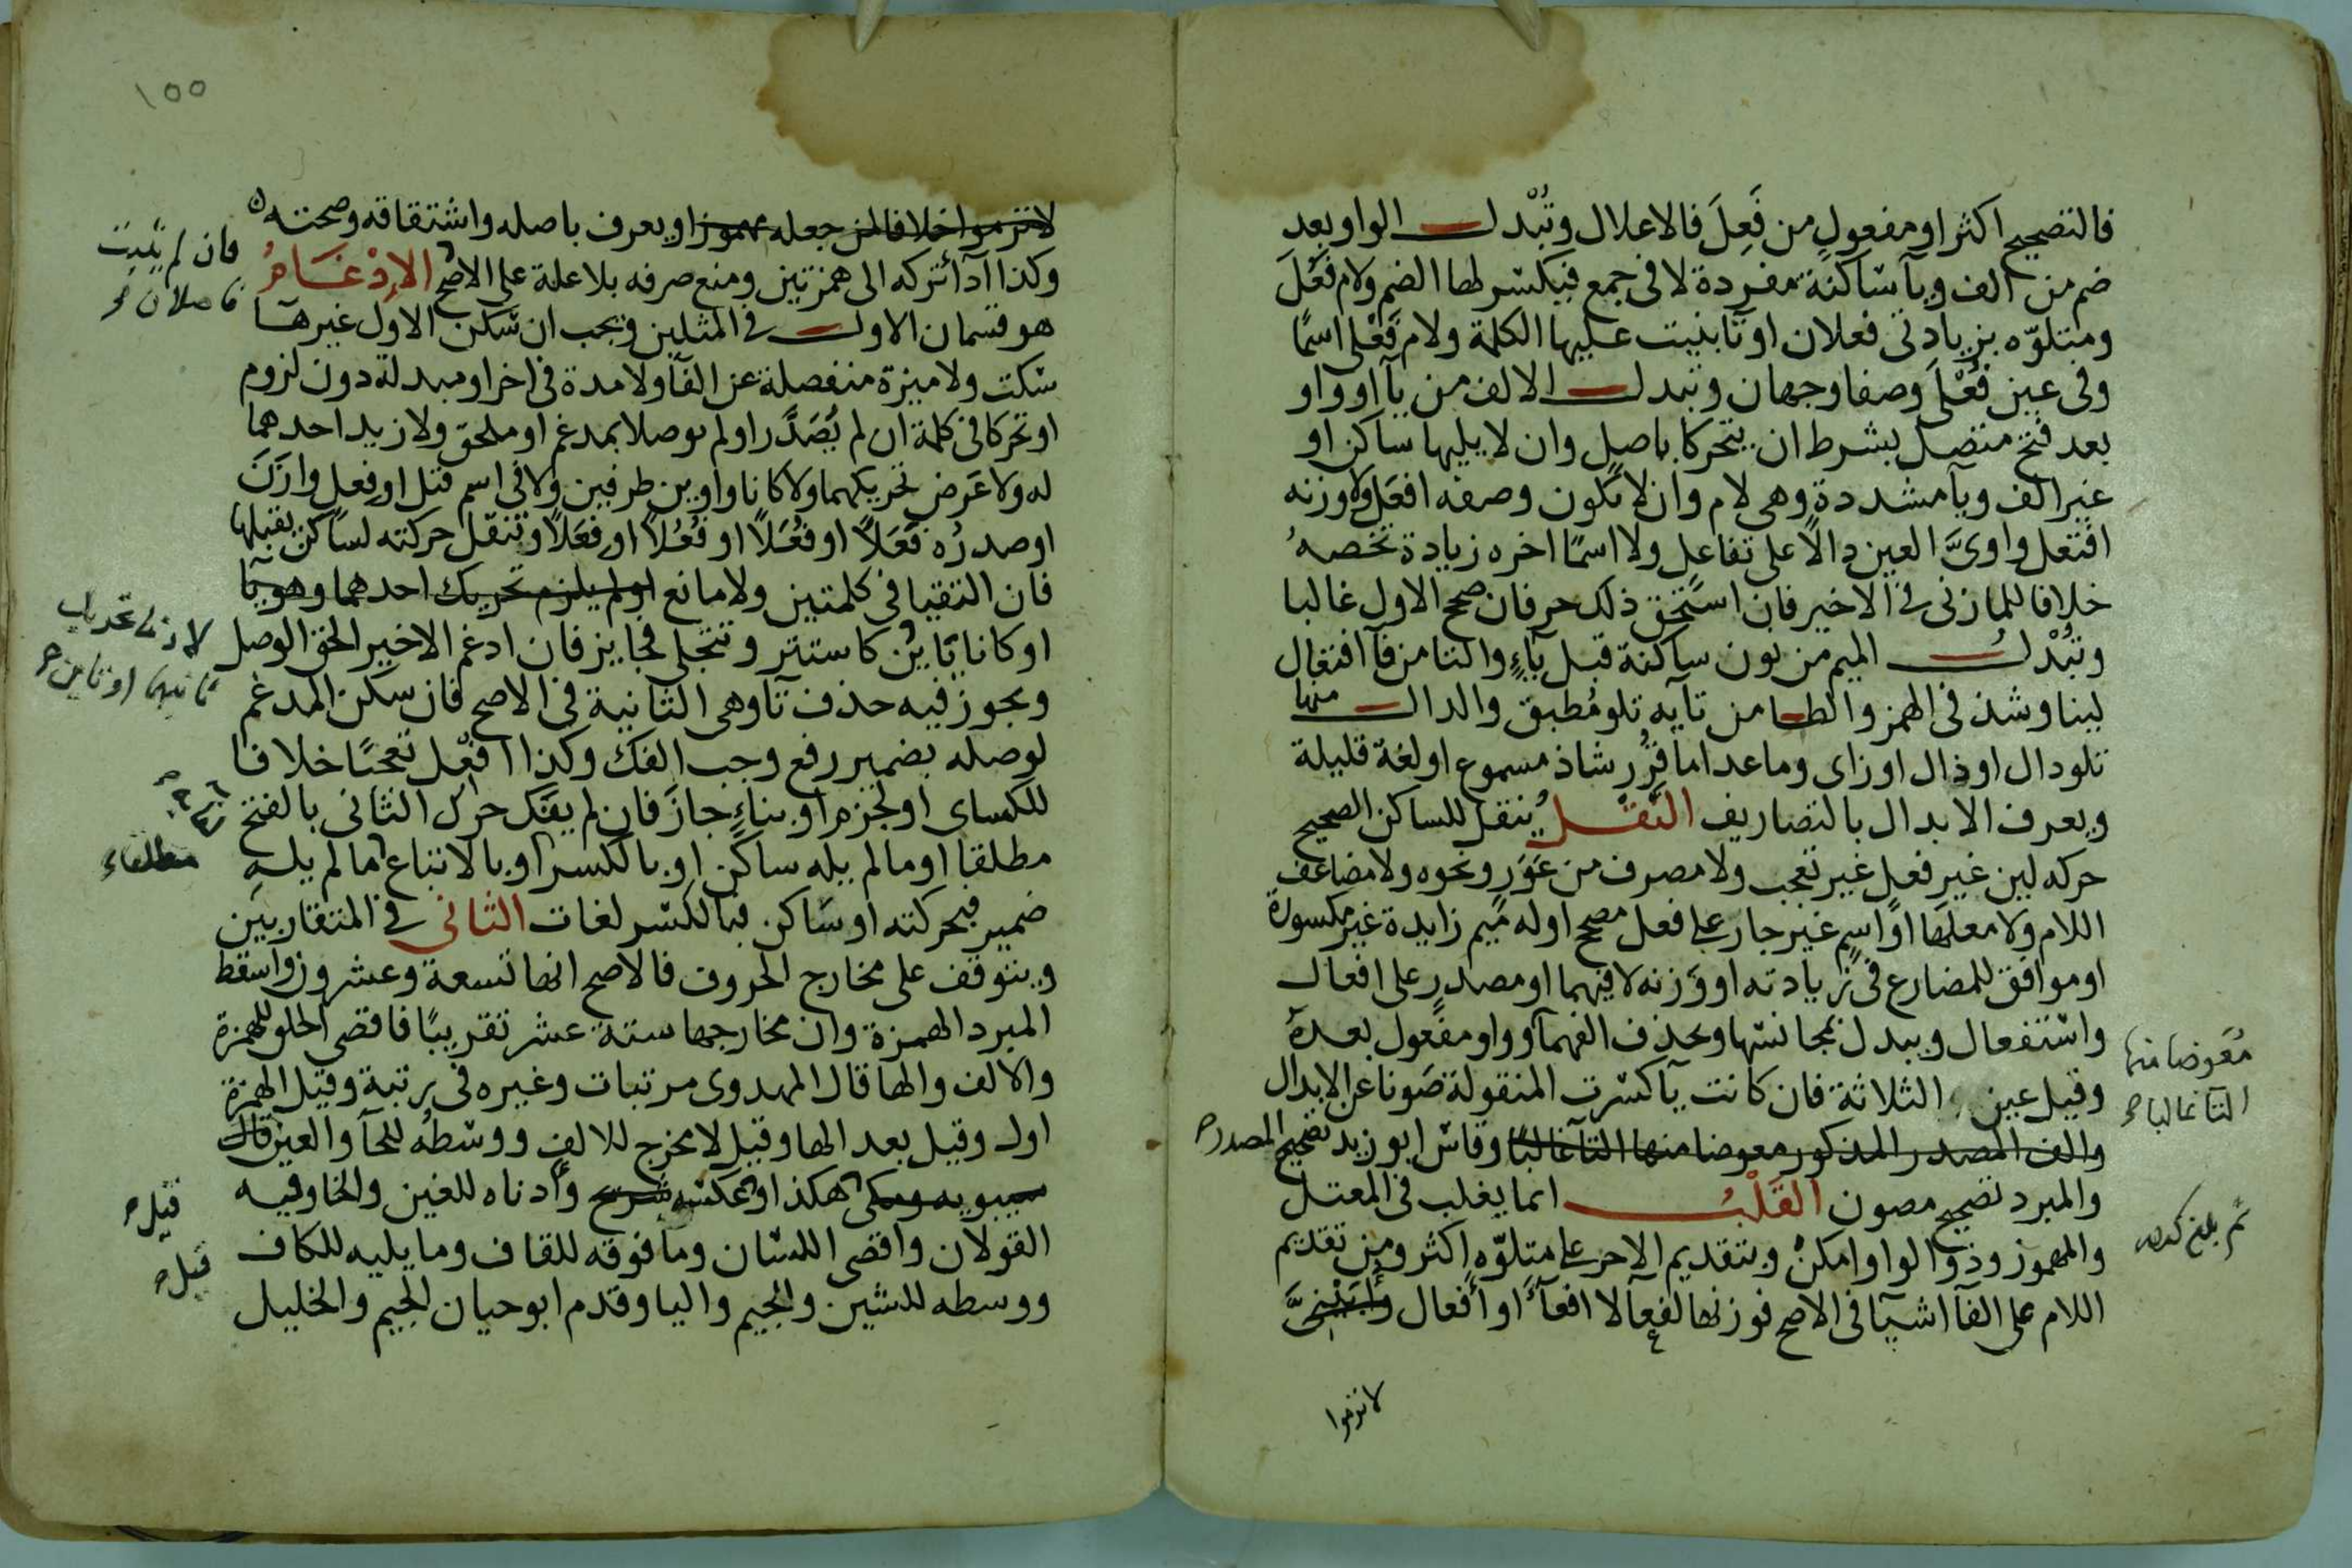 فالتصحيح اكثر او مفعول من فَعِلَ فالاعلال وتُبْدل الواو بعد
ضم من الف ويآ ساكنة مفردة لا فى جمع فيكسر لها الضم ولام فَعُلَ
ومتلوّه بزيادتى فعلان او تا بنيت عليها الكلمة ولام فَعْلى اسمًا
وفى عين فُعْلَى وصفا وجهان وتبدل الالف من يآ او واو
بعد فتح متصل بشرط ان يتحركا باصل وان لا يليها ساكن او
غير الف ويآ مشددة وهى لام وان لا تكون وصفه افعَل ولا وزنه
افتعل واوىَّ العين دالاً على تفاعل ولا اسمًا اخره زيادة تخصهُ
خلافا للمازنى فى الاخير فان استحق ذلك حرفان صح الاول غالبا
وتُبْدلُ الميم من نون ساكنة قبل بآءٍ والتا من فآ افتعال
لينا وشذ فى الهمز والطا من تآيه تلو مُطبق والدال منها
تلو دال او ذال او زاى وما عدا ما قُرّر شاذ مسموع او لغة قليلة
ويعرف الابدال بالتصاريف النَقْلُ ينقل للساكن الصحيح
حركه لين غير فعل غير تعجب ولا مصرف من عَوَرٍ ونحوه ولا مضاعف
اللام ولا معلها او اسمٍ غير جار على فعل مصح اوله ميم زايدة غير مكسورة
او موافق للمضارع فى زيادته او وَزنه لا فيهما او مصدرٍ على افعال
واستفعال ويبدل بمجانسها وتحذف الفهما وواو مفعول بعدهُ
معوضا منها
التآ غالبا
وقيل عين الثلاثة فان كانت يآ كسرت المنقولة صَونا عن الابدال
والف المصدر المذكور معوضا منها التآ غالبًا وقاس ابو زيد تصحيح المصدر
والمبرد تصحيح مصون القَلْبُ انما يغلب فى المعتل
والمهموز وذو الواو امكنُ وبتقديم الاخر على متلوّه اكثر ومن تقديم
اللام على الفآ اشيآ فى الاصح فوزنها لفعآ لا افعآءُ او أفعال
لانترموا
١٥٥
لانترموا خلافا لمن جعله مهموزا ويعرف باصله واشتقاقه وصحته
فان لم يثبت
فاصلان
وكذا ادآ تركه الى همزتين ومنع صرفه بلا علة على الاصح الاِدْغَامُ
هو قسمان الاول فى المثلين ويجب ان سَكن الاول غيرهآ
سكت ولا ميزة منفصلة عن الفآ ولا مدة فى اخر او مبدلة دون لزوم
او تحركا فى كلمة ان لم يُصَدَّرا ولم يوصلا بمدغم او ملحق ولا زيد احدهما
له ولا عَرض تحريكهما ولا كانا واوين طرفين ولا فى اسم قبل او فعل وازَنَ
او صدرُه فَعَلاً او فُعَلاً او فُعُلاً او فِعَلاً وتنقل حركته لساكن يقبلها
فان التقيا فى كلمتين ولا مانع او لم يلزم تحريك احدهما وهو يآ
او كانا تايين كاستتر وتتجلى فجايز فان ادغم الاخير الحق الوصل
ويجوز فيه حذف تآ وهى الثانية فى الاصح فان سكن المدغم
لوصله بضمير رفع وجب الفك وكذا افْعل تعجبًا خلافا
للكساى او لجزم او بناءٍ جازَ فان لم يفك حرك الثانى بالفتح
مطلقا
مطلقا او ما لم يله ساكن او بالكسر او بالاتباع ما لم يلهِ
ضمير فبحركته او ساكن فبالكسر لغات الثانى فى المتقاربين
ويتوقف على مخارج الحروف فالاصح انها تسعة وعشرون واسقط
المبرد الهمزة وان مخارجها ستة عشر تقريبًا فاقصى الحلق للهمزة
والالف والها قال المهدوى مرتبات وغيره فى رتبة وقيل الهمزة
اول وقيل بعد الها وقيل لا مخرج للالف ووسَطهُ للحآ والعين قال
سيبويه ومكى هكذا او عكسَه شريح وأدناه للغين والخا وفيه
قيل
القولان واقصى اللسَان وما فوقه للقاف وما يليه للكاف
قيل
ووسطه للشين والجيم واليا وقدم ابو حيان الجيم والخليل